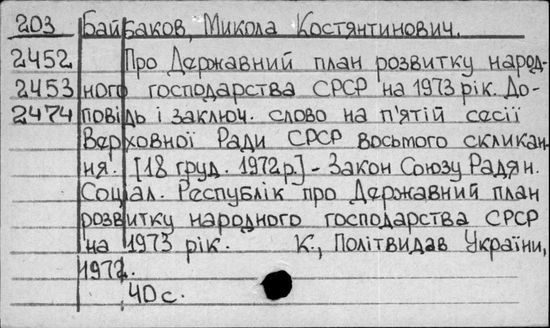 203 Байбаков, Микола Костянтинович.
2452 Про Державний план розвитку народ-
2453 ного господарства СРСР на 1973 рік. До-
2474 повідь і заключ. слово на п'ятій сесії
Верховної Ради СРСР восьмого скликан-
ня. [18 груд. 1972р.] - Закон Союзу Радян.
Соціал. Республік про Державний план
розвитку народного господарства СРСР
на 1973 рік. К., Політвидав України,
1972.
40 с.